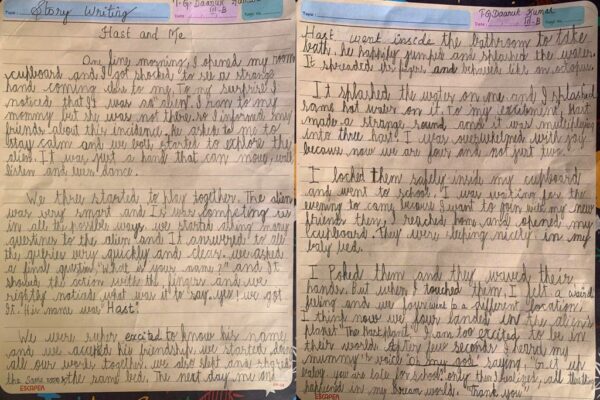 Story Writing
T.G. Daarut Kumar
III-B
Hast and Me
One fine morning, I opened my room
cupboard and I got shocked to see a strange
hand coming close to me. To my surprise I
noticed that It was an alien. I ran to my
mommy but she was not there. so I informed my
friends about this incidence. he asked to me to
stay calm and we both started to explore the
alien. It was just a hand that can move, walk,
listen and even dance.
We three started to play together. The alien
was very smart and It was competing us
in all the possible ways. we started asking more
questions to the alien and It answered to all
the queries very quickly and clear. we asked
a final question "What is your name?" and It
showed the action with the fingers and we
rightly noticed what was it to say, yes! we got
It. His name was "Hast".
We were super excited to know his name,
and we accepted his friendship. we started doing
all our works together. we also slept and shared
the same room & the same bed. The next day me and
ESCAPER
T.G Daarut Kumar
III-B
Hast went inside the bathroom to take
bath. he happily jumped and splashed the water.
It spreaded its fingers and behaved like an octopus.
It splashed the water on me and I splashed
some hot water on it. to my excitement, Hast
made a strange sound and it was multiplying
into three hast. I was overwhelmed with joy
because now we are four and not just two.
I locked them safely inside my cupboard
and went to school. I was waiting for the
evening to come because I want to play with my new
friends then, I reached home and opened my
cupboard. They were sleeping nicely in my
baby bed.
I Poked them and they waved their
hands. But when I touched them, I felt a weird
feeling and we four were in a different location
I think now we four landed in the alien's
planet "The hast planet". I am too excited to be in
their world. After few seconds I heard my
mummy's voice "Oh my god" saying "Get up
baby you are late for school". only then I realized, all this
happened in my dream world. "Thank you"
ESCAPER